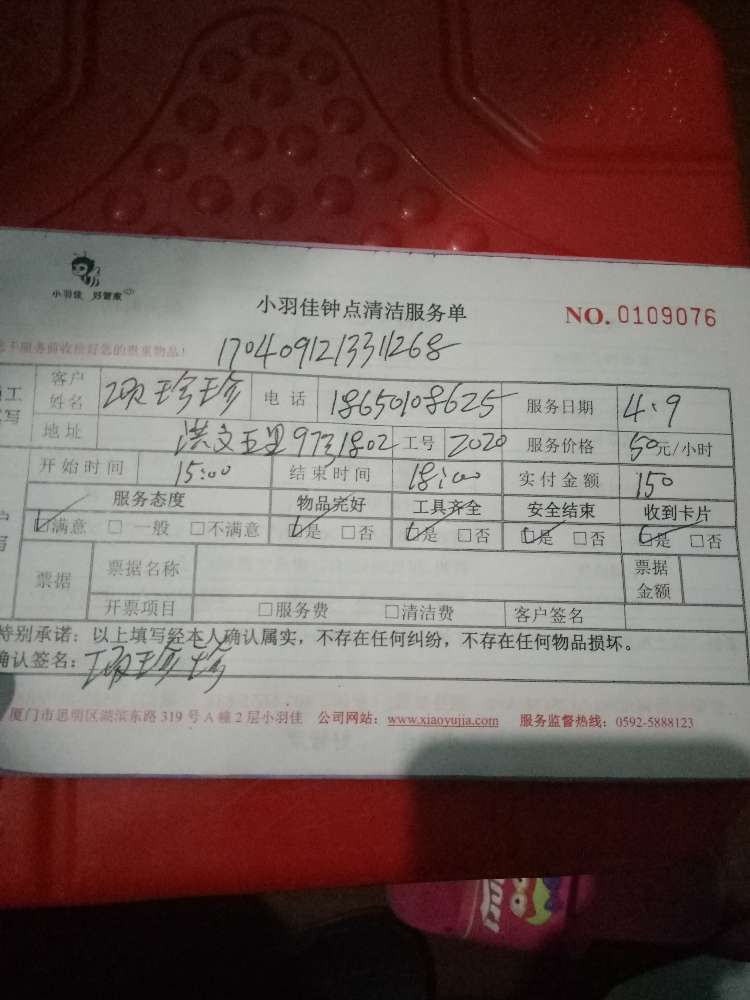 小羽佳 好管家
小羽佳钟点清洁服务单
NO. 0109076
170409121331268
客户姓名 项珍珍 电话 18650108625 服务日期 4.9
地址 洪文五里97号1802 工号 2020 服务价格 50元/小时
开始时间 15:00 结束时间 18:00 实付金额 150
服务态度 物品完好 工具齐全 安全结束 收到卡片
☑满意 □一般 □不满意 ☑是 □否 ☑是 □否 ☑是 □否 ☑是 □否
票据 票据名称 票据金额
开票项目 □服务费 □清洁费 客户签名
特别承诺：以上填写经本人确认属实，不存在任何纠纷，不存在任何物品损坏。
确认签名：项珍珍
厦门市思明区湖滨东路 319 号 A 幢 2 层小羽佳 公司网站：www.xiaoyujia.com 服务监督热线：0592-5888123